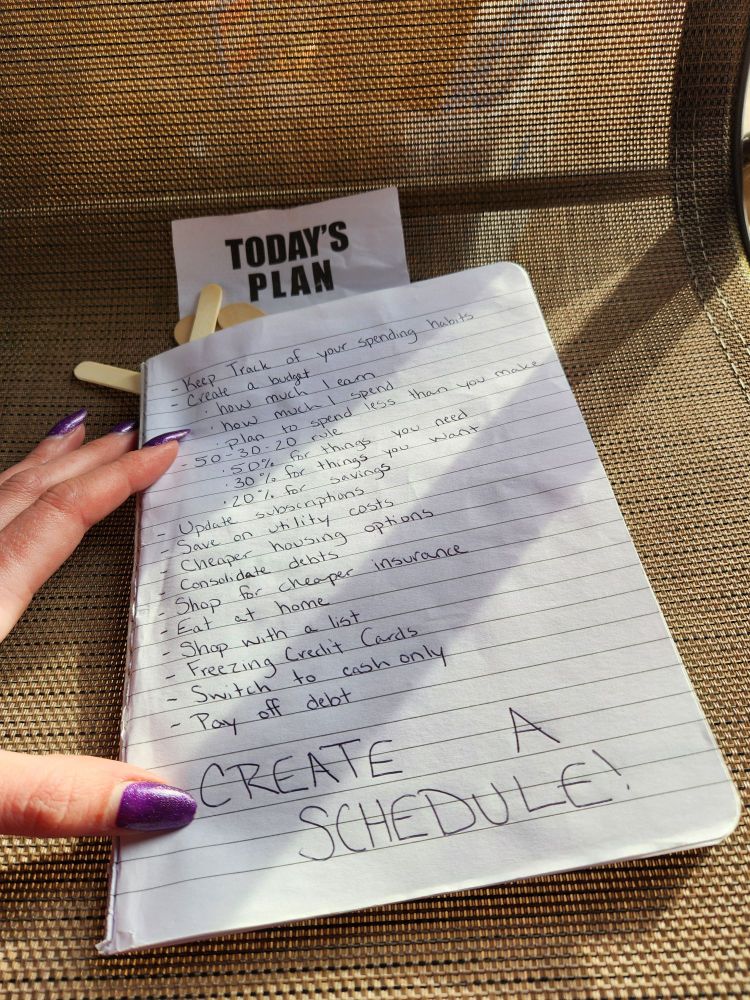 TODAY'S
PLAN
- Keep Track of your spending habits
- Create a budget
· how much I earn
· how much I spend
· plan to spend less than you make
- 50-30-20 rule
· 50% for things you need
· 30% for things you want
· 20% for savings
- Update subscriptions
- Save on utility costs
- Cheaper housing options
- Consolidate debts
- Shop for cheaper insurance
- Eat at home
- Shop with a list
- Freezing Credit Cards
- Switch to cash only
- Pay off debt
CREATE A
SCHEDULE!